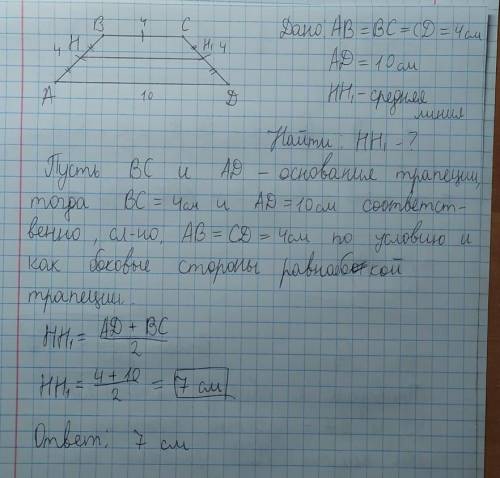 B 4 C
4 H H₁ 4
A 10 D
Дано: AB = BC = CD = 4 см
AD = 10 см
HH₁ - средняя
линия
Найти: HH₁ - ?
Пусть BC и AD - основания трапеции,
тогда BC = 4 см и AD = 10 см соответст-
венно, сл-но, AB = CD = 4 см по условию и
как боковые стороны равнобокой
трапеции.
HH₁ = AD + BC / 2
HH₁ = 4 + 10 / 2 = 7 см
Ответ: 7 см